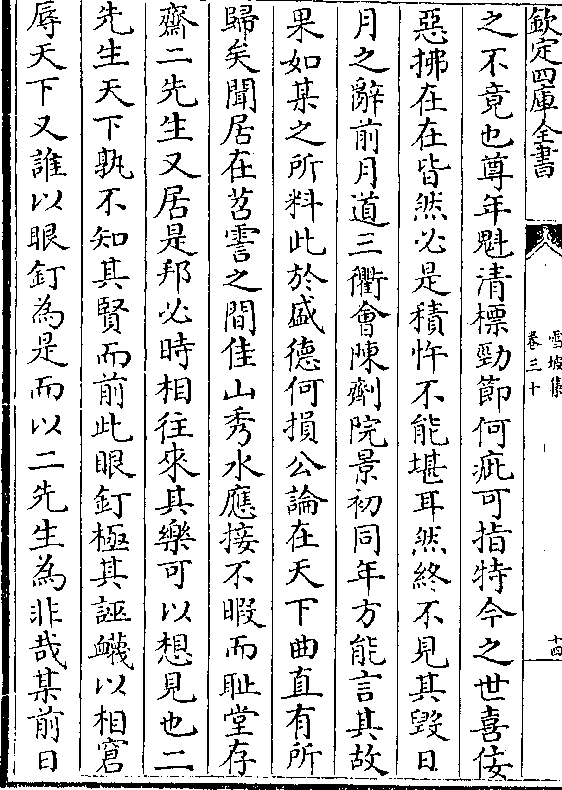 欽定四庫全書
雪坡集
卷三十
十四
之不竟也尊年魁清標勁節何疵可指特今之世喜佞
惡拂在在皆然必是積忤不能堪耳然終不見其毀日
月之辭前月道三衢會陳劑院景初同年方能言其故
果如某之所料此於盛德何損公論在天下曲直有所
歸矣聞居在苕霅之間佳山秀水應接不暇而耻堂存
齋二先生又居是邦必時相往來其樂可以想見也二
先生天下孰不知其賢而前此眼釘極其誣衊以相窘
辱天下又誰以眼釘為是而以二先生為非哉某前日